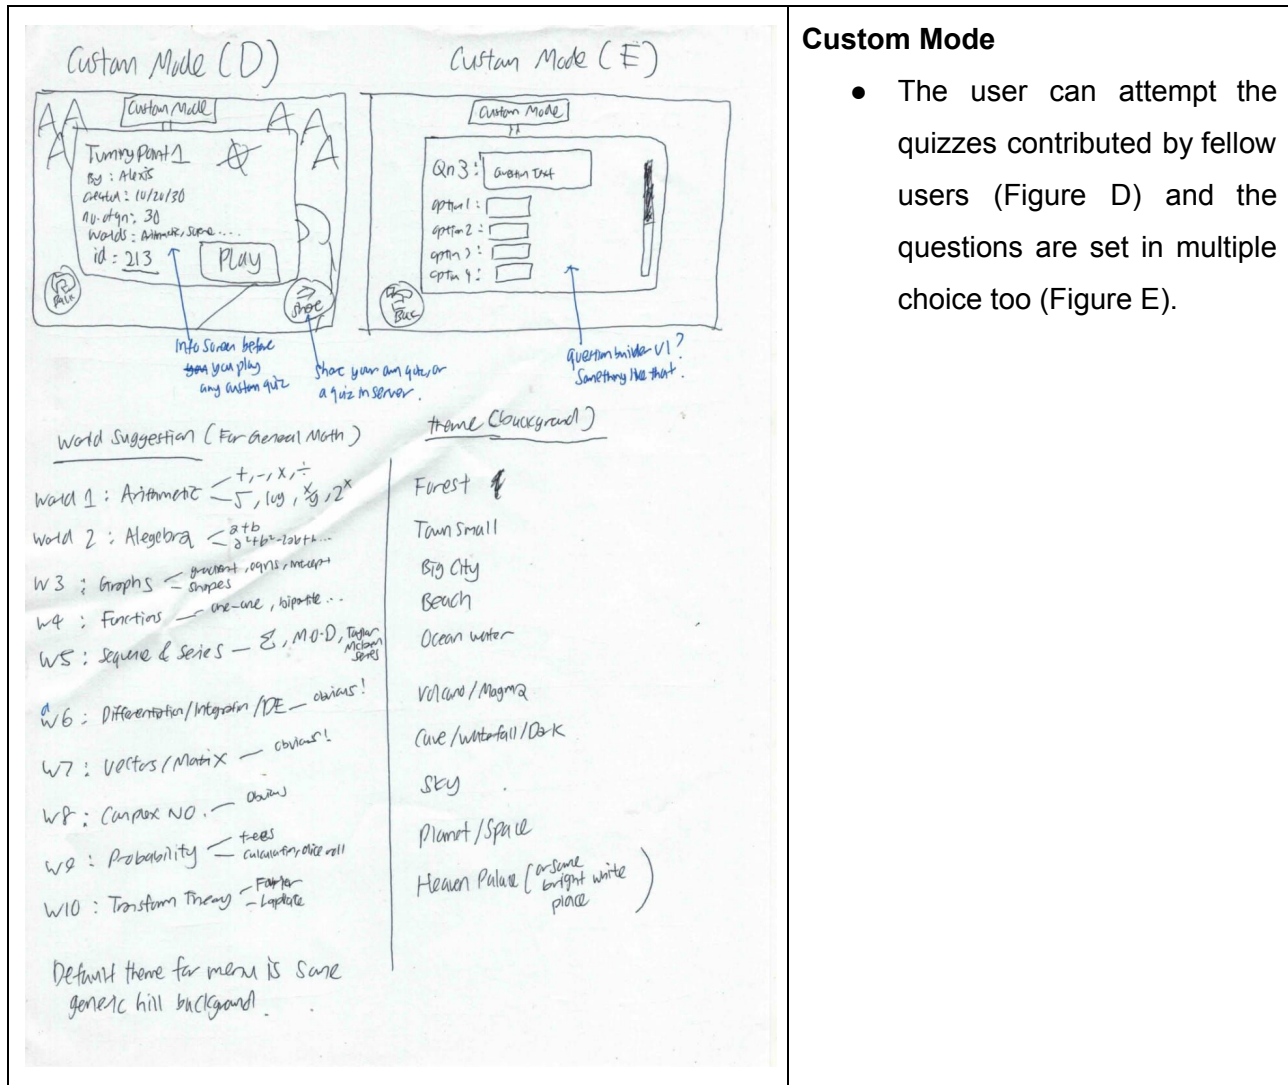 Custom Mode (D)
Custom Mode
Tummy Pant 1
By : Alexis
created : 10/20/30
no. of qn : 30
Worlds : Arithmetic, ....
id : 213
Play
Back
Share
Info Screen before
you play
any custom quiz
Share your own quiz, or
a quiz in server.
Custom Mode (E)
Custom Mode
Qn 3 : Question Text
option 1 :
option 2 :
option 3 :
option 4 :
Bac
question builder V1 ?
Something like that.
World Suggestion (For General Math)
World 1 : Arithmetic
+, -, x, ÷
√, log, 2ˣ
World 2 : Alegebra
a+b
W3 : Graphs
gradient, eqns,
shapes
W4 : Functions — one-one, bipartite ...
W5 : Sequence & Series — Σ, M.O.D, Taylor
series
W6 : Differentiation/Integration/DE — obvious!
W7 : Vectors/Matrix — obvious!
W8 : Complex NO. — obvious
W9 : Probability
trees
calculation, dice roll
W10 : Transform Theory
Laplace
theme (background)
Forest
Town Small
Big City
Beach
Ocean water
Volcano/Magma
Cave/Waterfall/Dark
Sky
Planet/Space
Heaven Palace (or some
bright white
place)
Default theme for menu is some
generic hill background.
Custom Mode
● The user can attempt the
quizzes contributed by fellow
users (Figure D) and the
questions are set in multiple
choice too (Figure E).